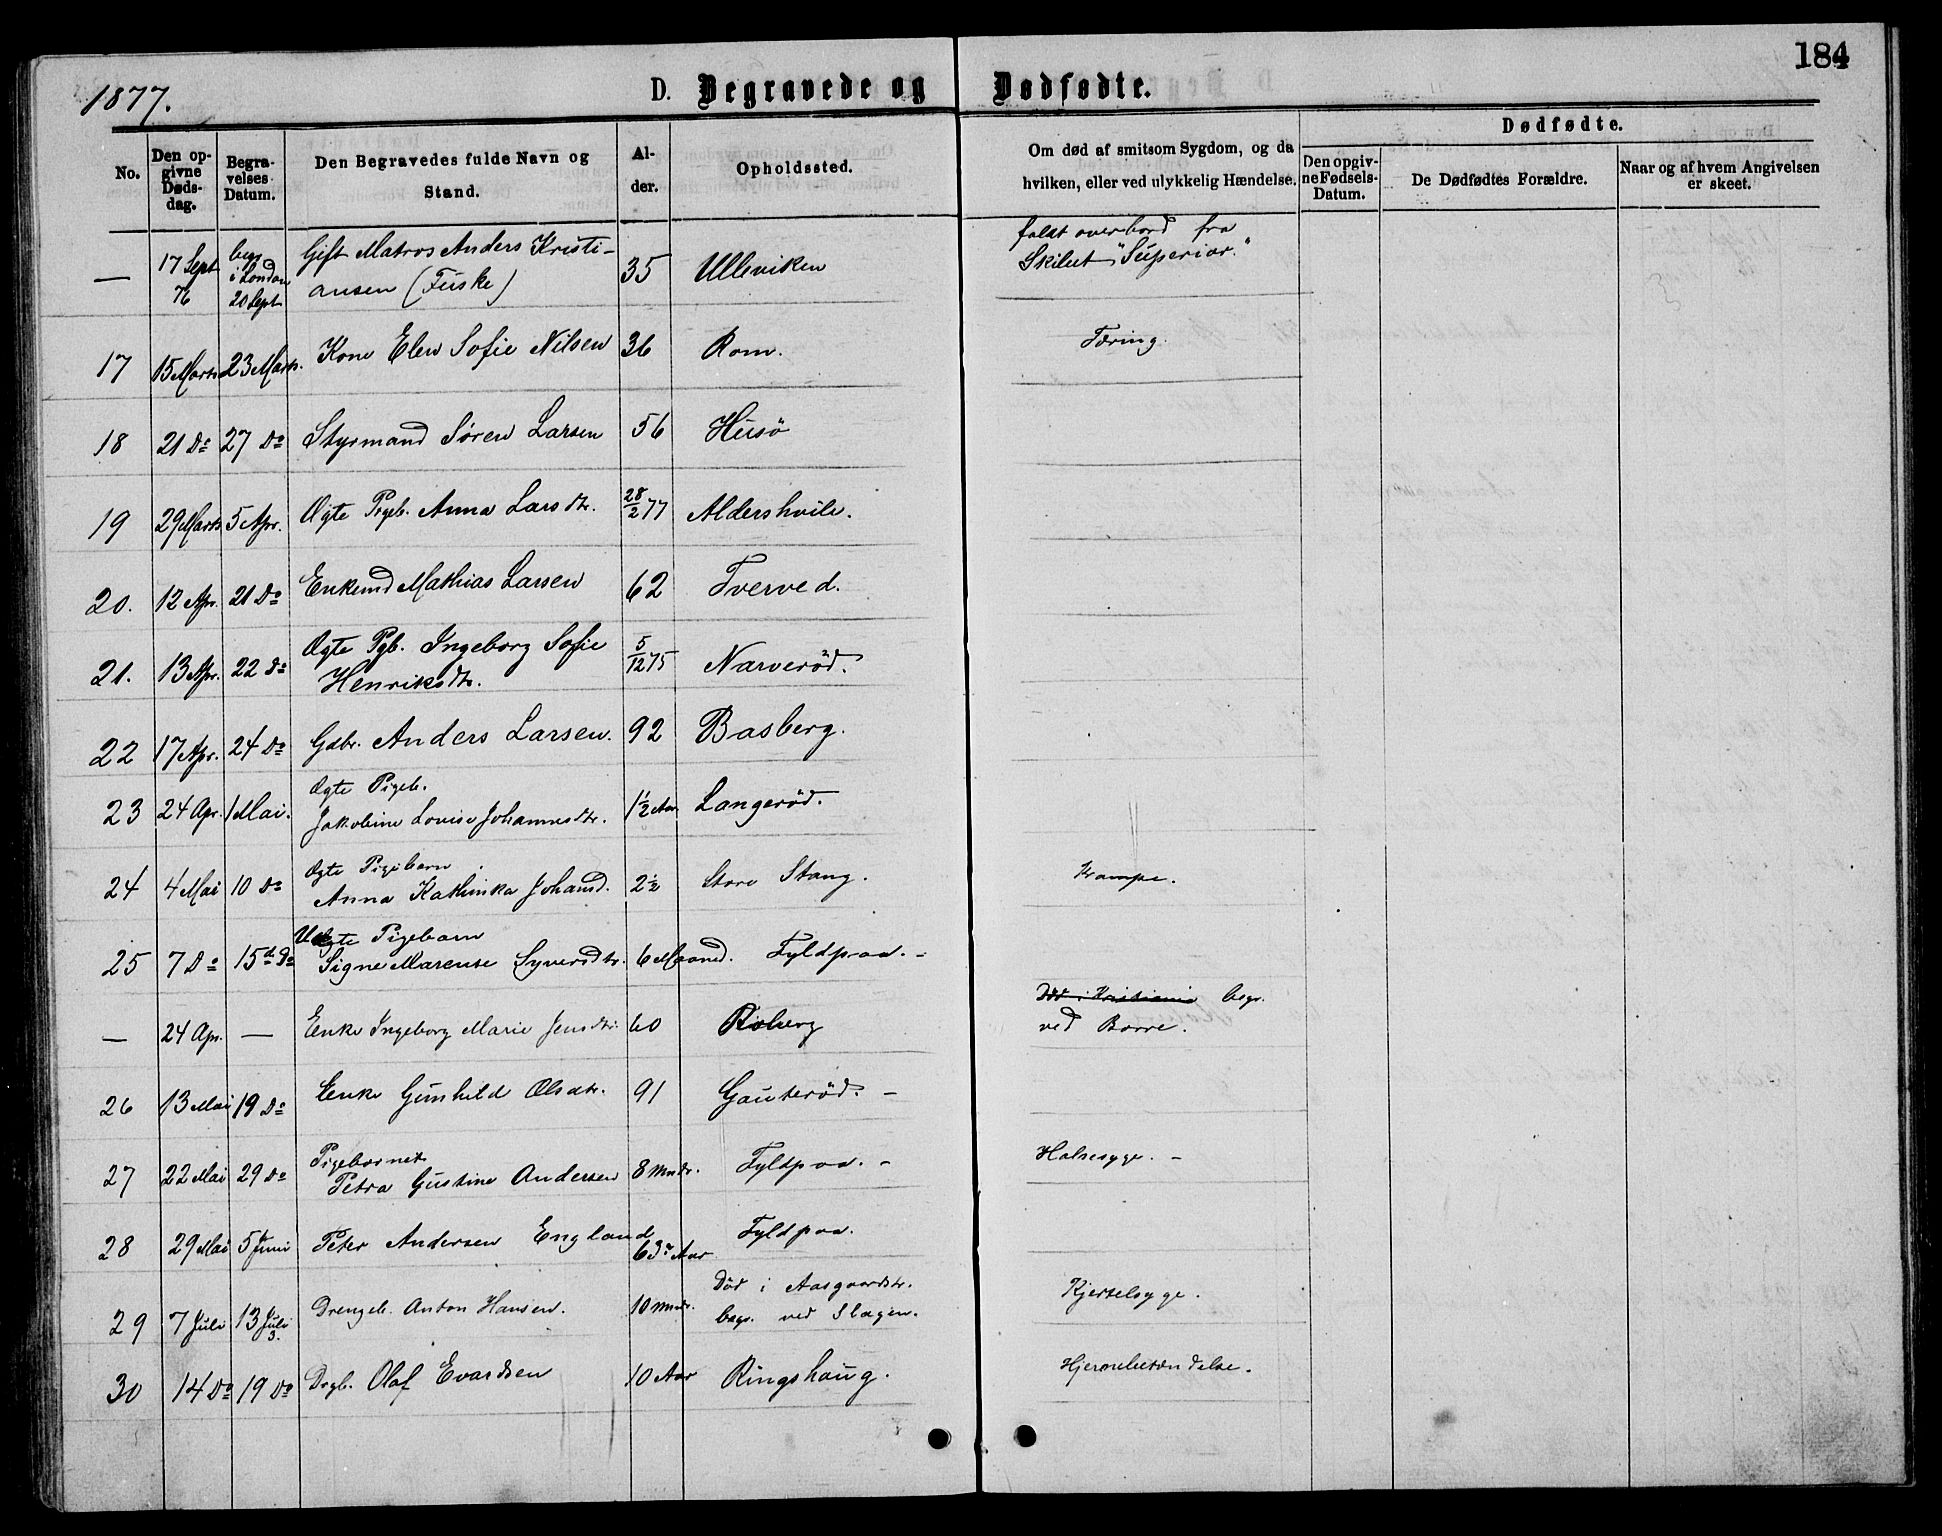 184
1877.
D. Begravede og Dødfødte.
No.
Den op-
givne
Døds-
dag.
Begra-
velses
Datum.
Den Begravedes fulde Navn og
Stand.
Al-
der.
Opholdssted.
Om død af smitsom Sygdom, og da
hvilken, eller ved ulykkelig Hændelse.
Dødfødte.
Den opgiv-
ne Fødsels-
Datum.
De Dødfødtes Forældre.
Naar og af hvem Angivelsen
er skeet.
— 17 Sept 76 begr. i London 20 Sept Gift Matros Anders Kristi-
ansen (Fuske) 35 Ulleviken faldt overbord fra
Skibet "Superior."
17 15 Marts 23 Marts. Kone Elen Sofie Nilsen 36 Rom. Tæring.
18 21 Do 27 Do Styrmand Søren Larsen 56 Husö
19 29 Marts 5 Apr. Ægte Pigeb. Anna Larsdtr. 28/2 77 Aldershvile.
20. 12 Apr. 21 Do Enkemd Mathias Larsen 62 Tverved.
21. 13 Apr. 22 Do Ægte Pgb. Ingeborg Sofie
Henriksdtr. 5/12 75 Narveröd.
22 17 Apr. 24 Do Gdbr. Anders Larsen. 92 Basberg.
23 24 Apr. 1 Mai. Ægte Pigeb.
Jakobine Lovise Johannesdtr. 1½ Aar Langeröd.
24 4 Mai 10 Do Ægte Pigebarn
Anna Kathinka Johansd. 2½ Store Stang. Krampe.
25 7 Do 15 Do Uægte Pigebarn
Signe Marense Syversdtr. 6 Maaned. Fyldpaa. -
— 24 Apr. — Enke Ingeborg Marie Jensdtr. 60 Roberg Död i Kristiania begr.
ved Borre.
26 13 Mai 19 Do Enke Gunhild Olsdtr. 91 Gauteröd. -
27 22 Mai 29 Do Pigebarnet
Petra Gustine Andersen 8 Mndr. Fyldpaa. - Halsesyge. -
28 29 Mai 5 Juni Peter Andersen England 63 Aar Fyldpaa.
29 7 Juli 13 Juli 3. Drengeb. Anton Hansen. 10 Mndr. Död i Aasgaardstr.
begr. ved Slagen. Kjertelsyge.
30 14 Do 19 Do Drgb. Olaf Evardsen 10 Aar Ringshaug. Hjernebetændelse.